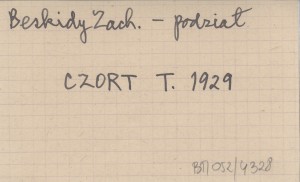 Beskidy Zach. – podział
CZORT T. 1929
BП/052/4328